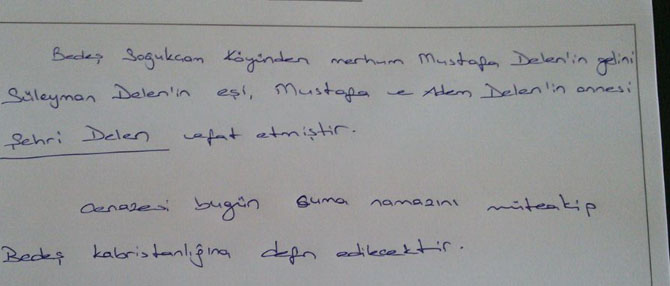 Bedeş Soğukcam Köyünden merhum Mustafa Delen'in gelini
Süleyman Delen'in eşi, Mustafa ve Adem Delen'in annesi
Şehri Delen vefat etmiştir.
Cenazesi bugün Cuma namazını müteakip
Bedeş kabristanlığına defn edilecektir.